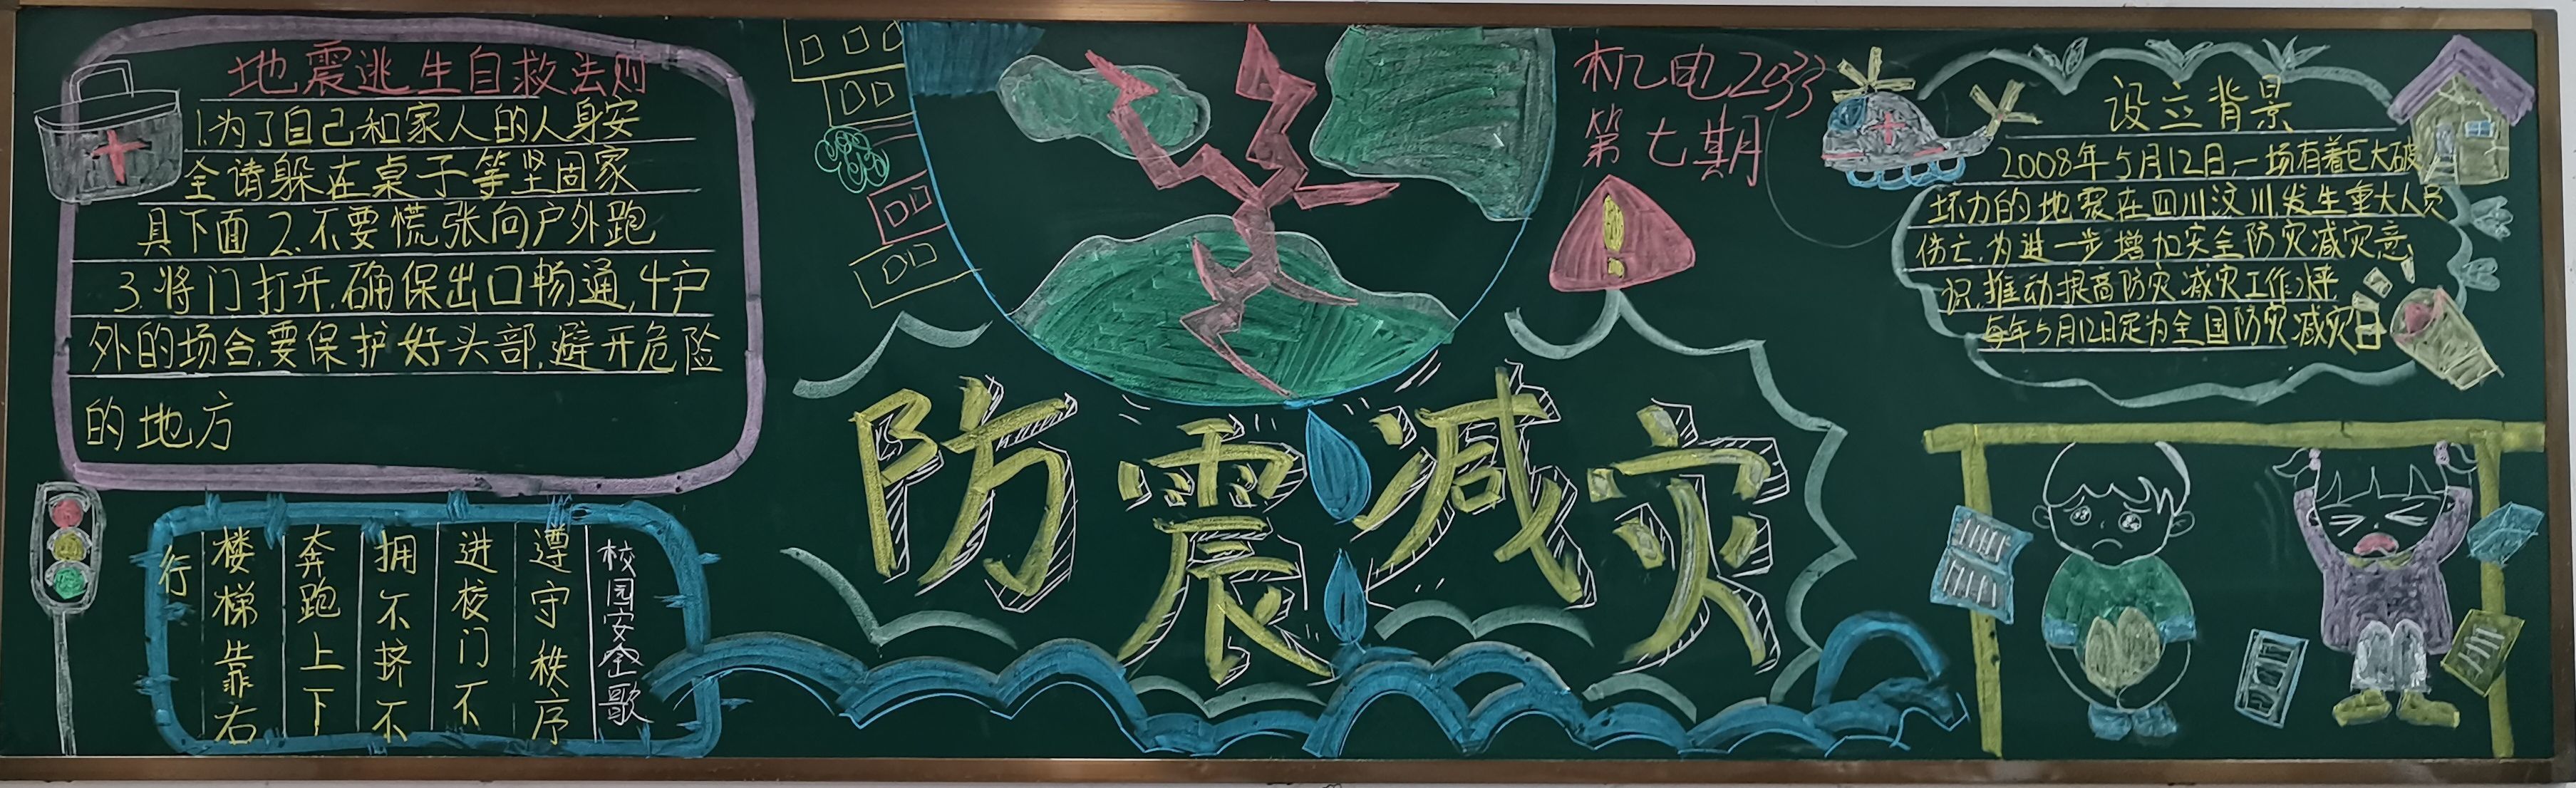 地震逃生自救法则
1.为了自己和家人的人身安
全请躲在桌子等坚固家
具下面2.不要慌张向户外跑
3.将门打开,确保出口畅通,4户
外的场合,要保护好头部,避开危险
的地方
校园安全歌
遵守秩序
进校门不
拥不挤不
奔跑上下
楼梯靠右
行
防震减灾
机电2033
第七期
设立背景
2008年5月12日,一场有着巨大破
坏力的地震在四川汶川,发生重大人员
伤亡,为进一步增加安全防灾减灾意
识,推动提高防灾减灾工作水平
每年5月12日定为全国防灾减灾日